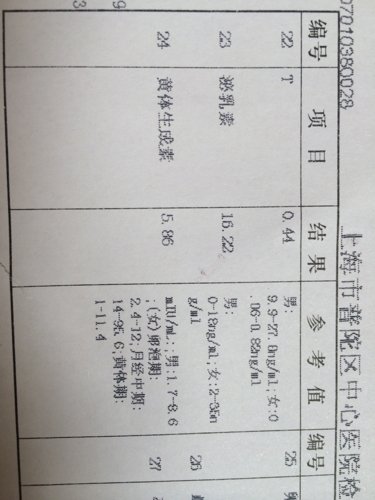 07010380028
上海市普陀区中心医院检
编号 项目 结果 参考值 编号
22 T 0.44 男: 25
9.9-27.8ng/ml;女:0
.06-0.82ng/ml
23 泌乳素 16.22 男: 26
0-18ng/ml;女:2-35n
g/ml
24 黄体生成素 5.86 mIU/mL:男:1.7-8.6 27
;(女)卵泡期:
2.4-12;月经中期:
14-95.6;黄体期:
1-11.4
9
3